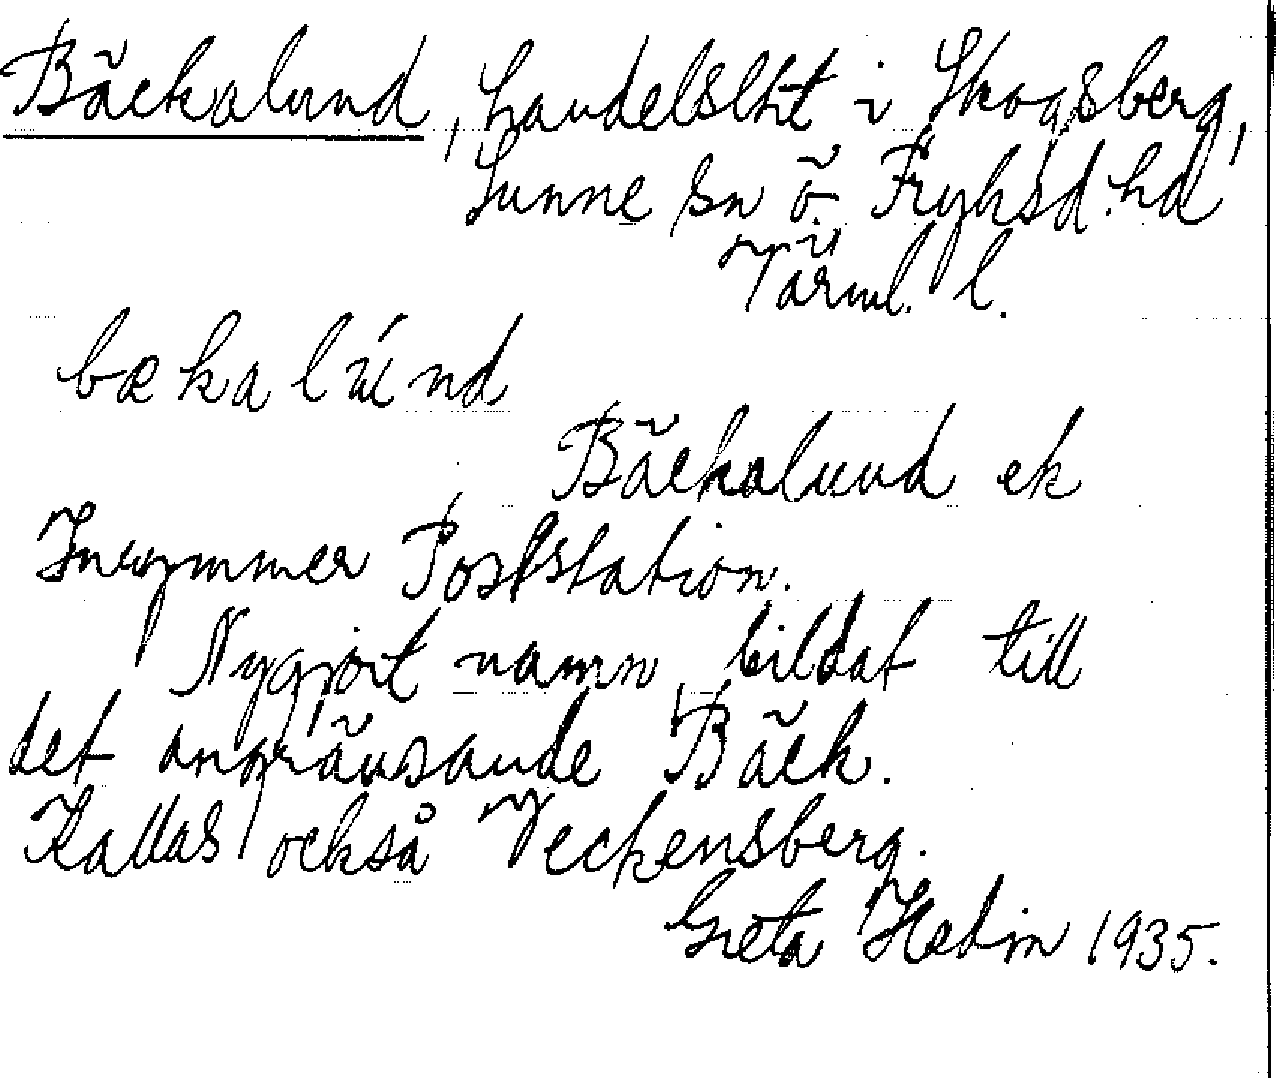 Bäckalund, handelslht i Skogsberg,
Sunne sn Ö. Fryksd. hd
Värml. l.
bækalúnd
Bäckalund ek
Inrymmer Poststation.
Nygjort namn, bildat till
det angränsande Bäck.
Kallas också Veckensberg.
Greta Hedin 1935.